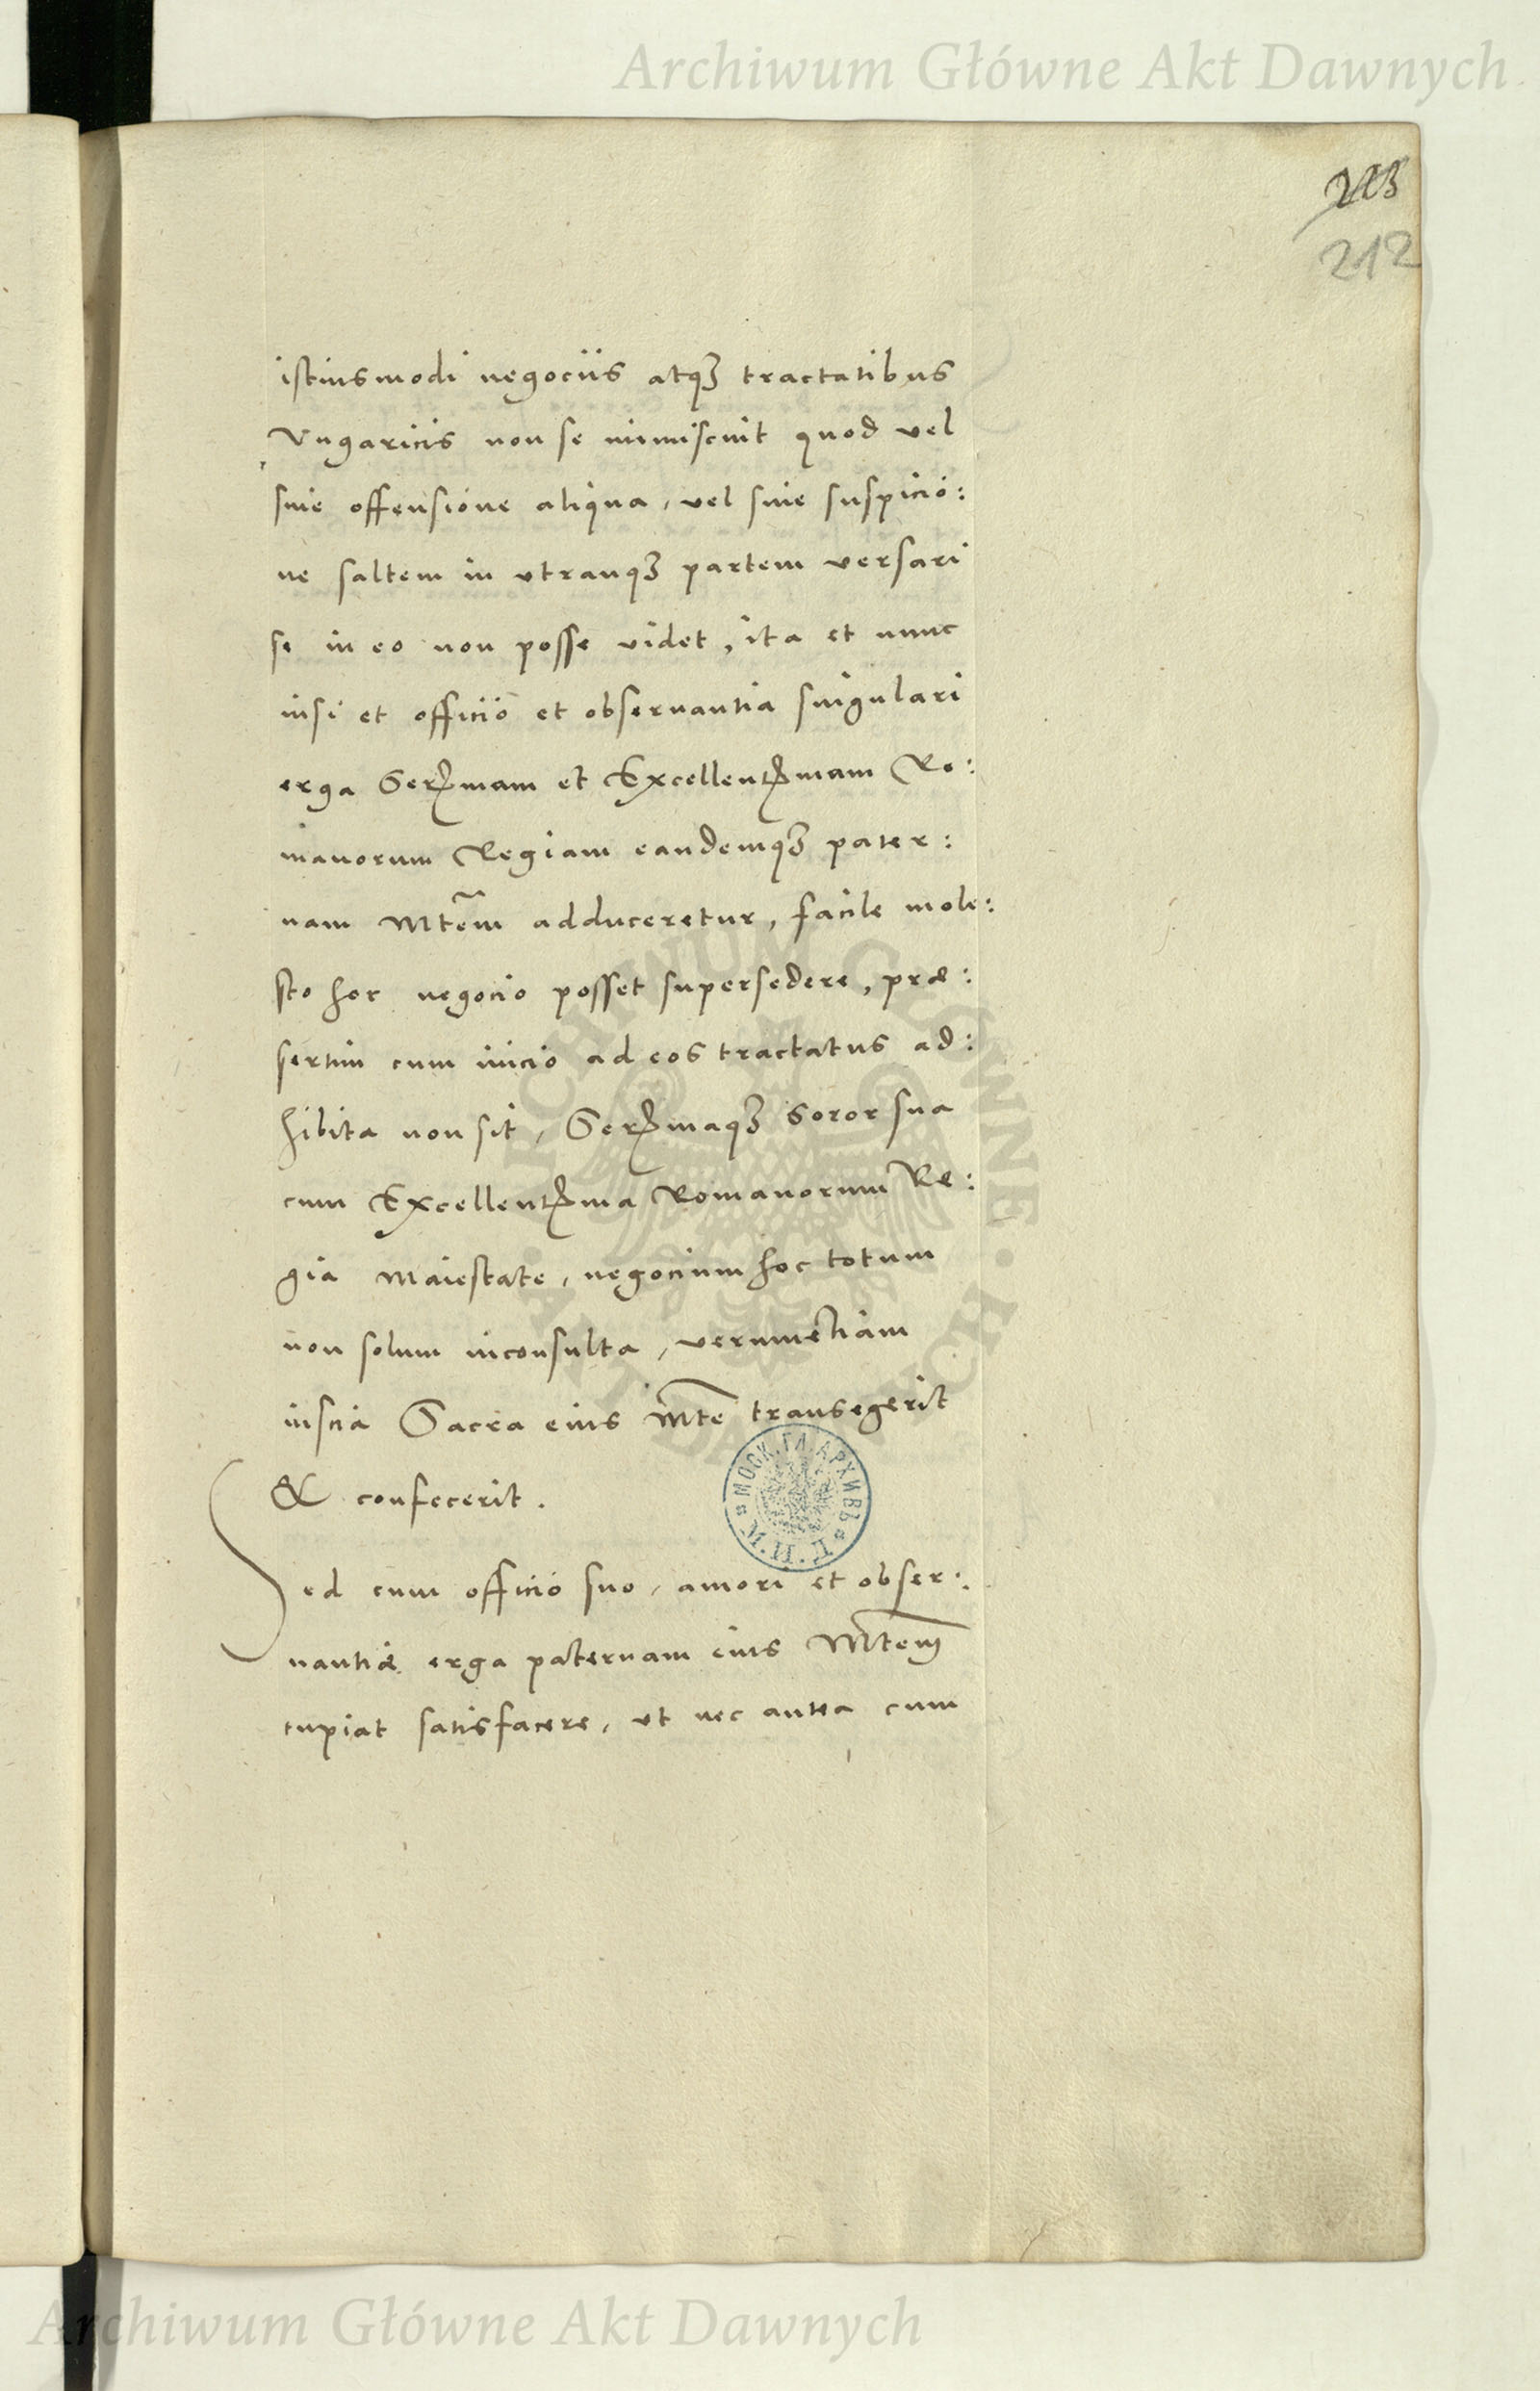 Archiwum Główne Akt Dawnych
213
212
istiusmodi negociis atqꝫ tractatibus
Vngaricis non se immiscuit quod vel
sine offensione aliqua, vel sine suspicio:
ne saltem in vtranqꝫ partem versari
se in eo non posse videt, ita et nunc
nisi et officio et obseruantia singulari
erga Serꝭmam et Excellentꝭmam Ro:
manorum Regiam eandemqꝫ pater:
nam Mt̃em adduceretur, facile mole:
sto hoc negocio posset supersedere, præ:
sertim cum inicio ad eos tractatus ad:
hibita non sit, Serꝭmaqꝫ Soror sua
cum Excellentꝭma Romanorum Re:
gia Maiestate, negocium hoc totum
non solum inconsulta, verumetiam
inscia Sacra eius Mt̃e transegerit
& confecerit.
МОСК. ГЛ. АРХИВЪ
Sed cum officio suo, amori et obser:
uantiæ erga paternam eius Mt̃em
cupiat satisfacere, vt nec antea cum
Archiwum Główne Akt Dawnych